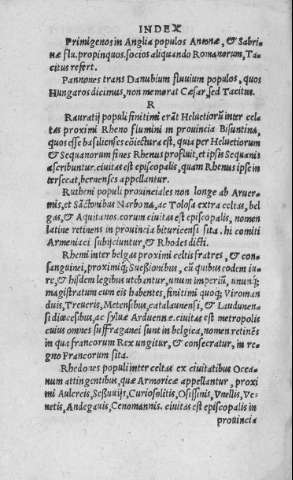 INDEX
Primigenos in Anglia populos Antonæ, & Sabri-
næ flu. propinquos. socios aliquando Romanorum, Ta-
citus refert.
Pannones trans Danubium fluuium populos, quos
Hungaros dicimus, non memorat Cæsar, sed Tacitus.
R
Rauratij populi finitimi erãt Heluetiorũ inter celtas
proximi Rheno flumini in prouincia Bisuntina,
quos esse basilienses cõiectura est, quia per Heluetiorum
& Sequanorum fines Rhenus profluit, et ipsis Sequanis
ascribuntur. ciuitas est episcopalis, quam Rhenus ipse in
tersecat, bernenses appellantur.
Rutheni populi prouinciales non longe ab Aruer-
nis, et Sãctonibus Narbona, ac Tolosa extra celtas, bel
gas, & Aquitanos. eorum ciuitas est episcopalis, nomen
latine retinens in prouincia bituricensi sita. hi comiti
Armeniaci subijciuntur, & Rhodes dicti.
Rhemi inter belgas proximi celtis fratres, & con-
sanguinei, proximiq; Suessionibus, cũ quibus eodem iu-
re, & hisdem legibus utebantur, unum imperiũ, unumq;
magistratum cum eis habentes, finitimi quoq; Viroman
duis, Treueris, Metensibus, catalaunensi, & Laudunen-
si diœcesibus, ac syluæ Arduennæ. ciuitas est metropolis
cuius omnes suffraganei sunt in belgica, nomen retinẽs
in qua francorum Rex ungitur, & consecratur, in re-
gno Francorum sita.
Rhedones populi inter celtas ex ciuitatibus Ocea-
num attingentibus, quæ Armoricæ appellantur, proxi
mi Aulercis, Sessuuijs, Curiosolitis, Osissinis, Vnellis, Ve-
netis, Andegauis, Cenomannis. ciuitas est episcopalis in
prouincia